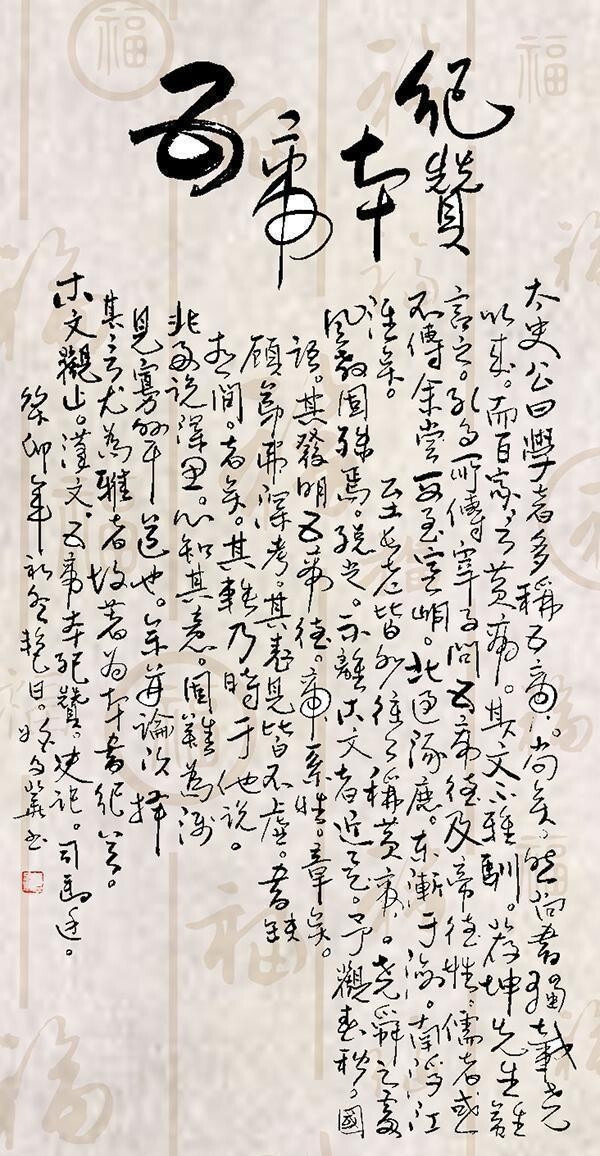 五帝本紀贊
太史公曰學者多稱五帝.尚矣。然尚書獨載堯
以來。而百家言黃帝。其文不雅馴。薦坤先生難
言之。孔子所傳宰予問五帝德及帝德性。儒者或
不傳余嘗西至空峒。北過涿鹿。東漸于海。南浮江
淮矣。至長老皆各往往稱黃帝.堯舜之處
風教固殊焉。總之。不離古文者近是。予觀春秋。國
語。其發明五帝德。帝系姓。章矣。
顧弟弗深考。其表見皆不虛。書缺
有間。者矣。其軼乃時于他說。
非好說深思。心知其意。固難為淺
見寡聞道也。余並論次擇
其言尤為雅者故著為本書紀首。
古文觀止。漢文.五帝本紀贊。史記。司馬遷。
癸卯年初冬艷日。書
福